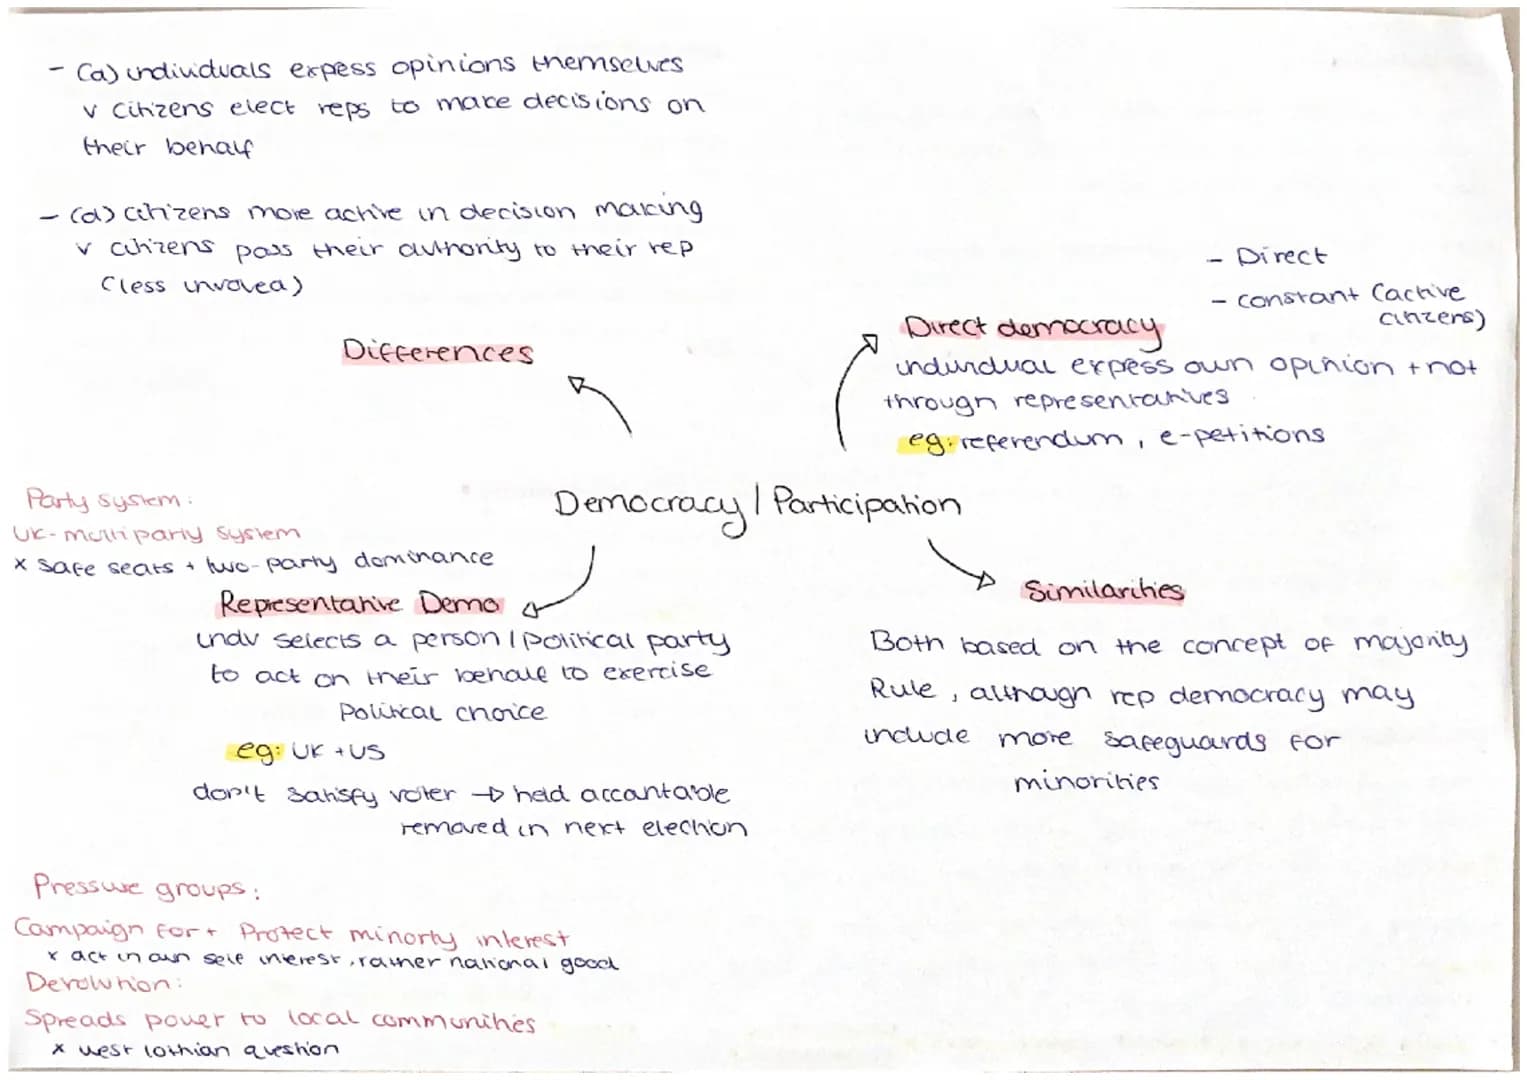 - (a) individuals expess opinions themselves
v citizens elect reps to make decisions on
their behalf
- (d) citizens more active in decision making
v citizens pass their authority to their rep
(less involved)
Differences
- Direct
- constant (active
citizens)
Direct democracy
individual expess own opinion + not
through representatives
eg: referendum, e-petitions
Democracy / Participation
Party system:
UK - multiparty system
x safe seats + two-party dominance
Representative Demo
indv selects a person / political party
to act on their behalf to exercise
Political choice
eg: UK + US
don't satisfy voter → held accountable
removed in next election
Similarities
Both based on the concept of majority
Rule, although rep democracy may
include more safeguards for
minorities
Pressure groups:
Campaign for + Protect minorty interest
x act in own self interest, rather national good
Devolution:
Spreads power to local communities
x west lothian question